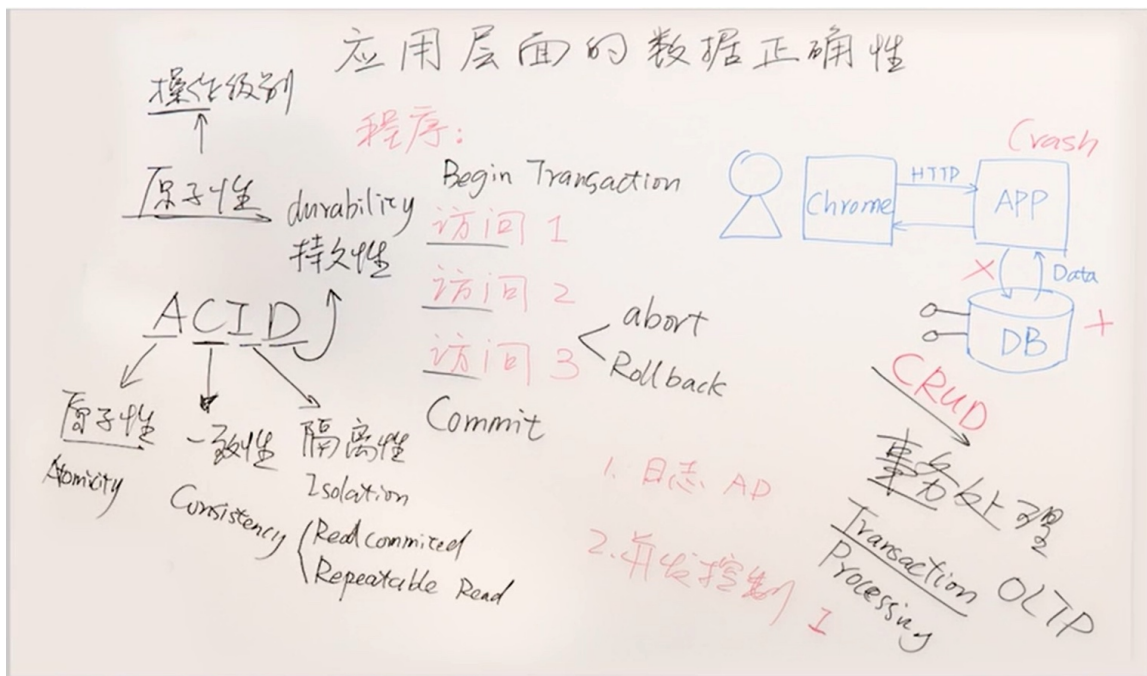 应用层面的数据正确性
操作级别
原子性
durability
持久性
ACID
原子性
Atomicity
一致性
Consistency
隔离性
Isolation
Read commited
Repeatable Read
程序:
Begin Transaction
访问 1
访问 2
访问 3
abort
Rollback
Commit
1. 日志 AD
2. 并发控制 I
Crash
Chrome
HTTP
APP
Data
DB
CRUD
事务处理
Transaction
Processing
OLTP